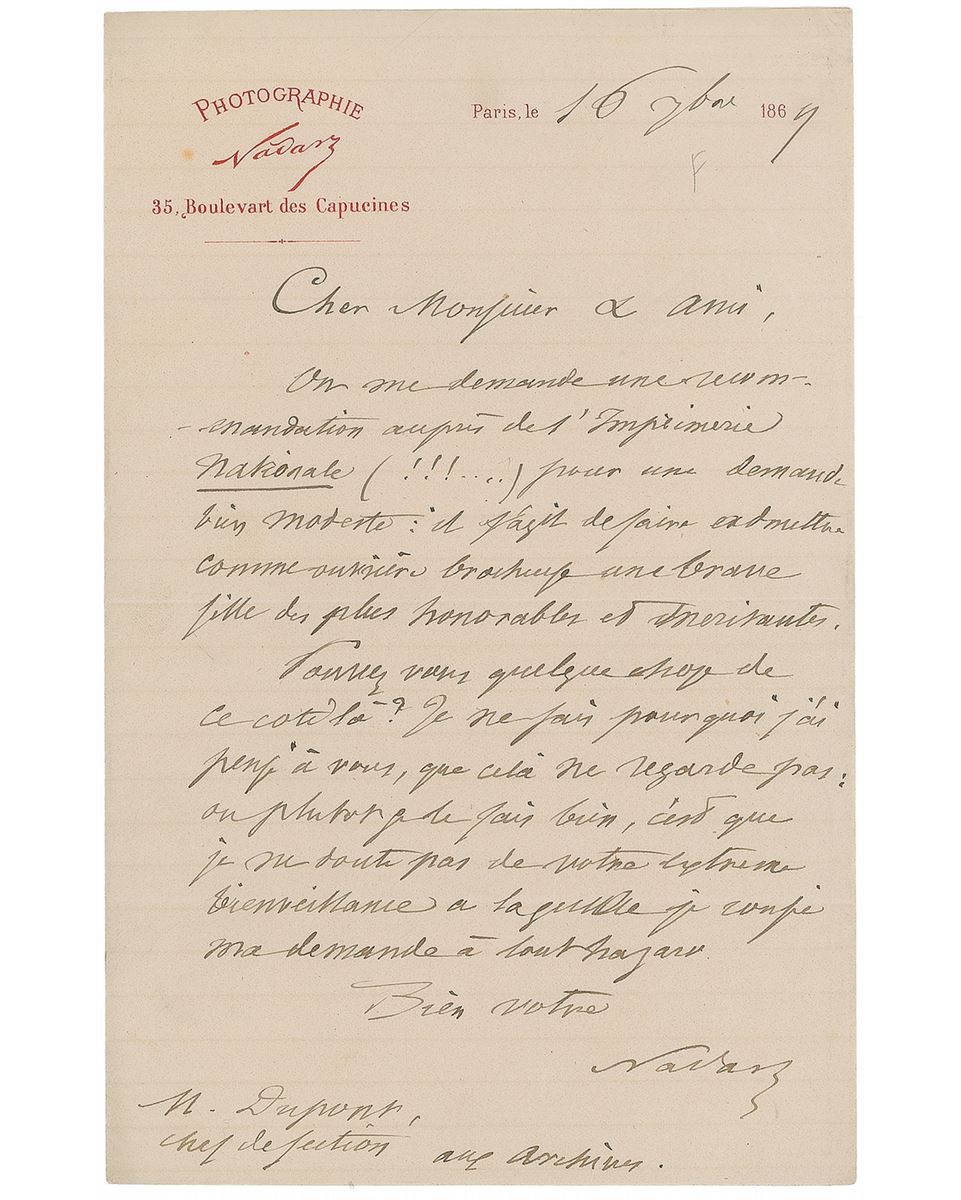 PHOTOGRAPHIE
Nadar
35, Boulevart des Capucines
Paris, le 16 7bre 1869
Cher Monsieur & ami,
On me demande une recom-
-mandation auprès de l'Imprimerie
Nationale (!!!....) pour une demande
bien modeste : il s'agit de faire admettre
comme ouvrière brocheuse une brave
fille des plus honorables et méritantes.
Pouvez vous quelque chose de
ce coté là ? Je ne sais pourquoi j'ai
pensé à vous, que celà ne regarde pas :
ou plutot je le sais bien, c'est que
je ne doute pas de votre extreme
bienveillance a laquelle je confie
ma demande à tout hazard.
Bien votre
Nadar
M. Dupont,
chef de section aux archives.